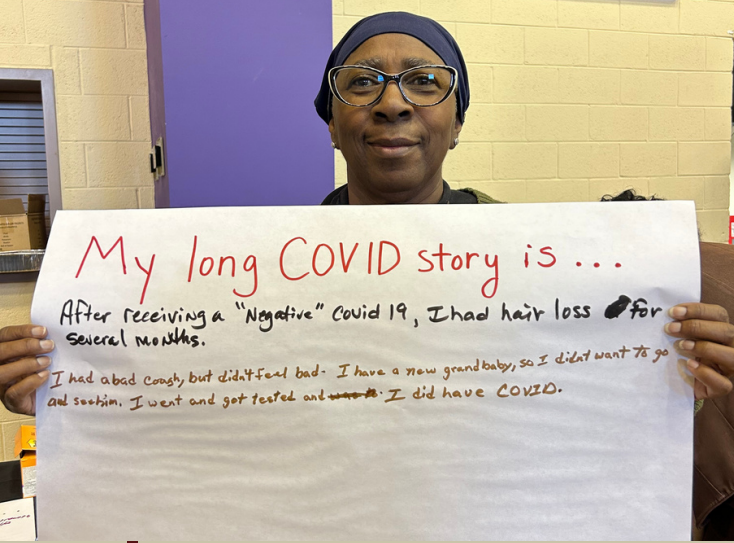 My long COVID story is ...
After receiving a "Negative" Covid 19, I had hair loss for
several months.
I had a bad cough, but didn't feel bad. I have a new grandbaby, so I didn't want to go
and see him. I went and got tested and I did have COVID.